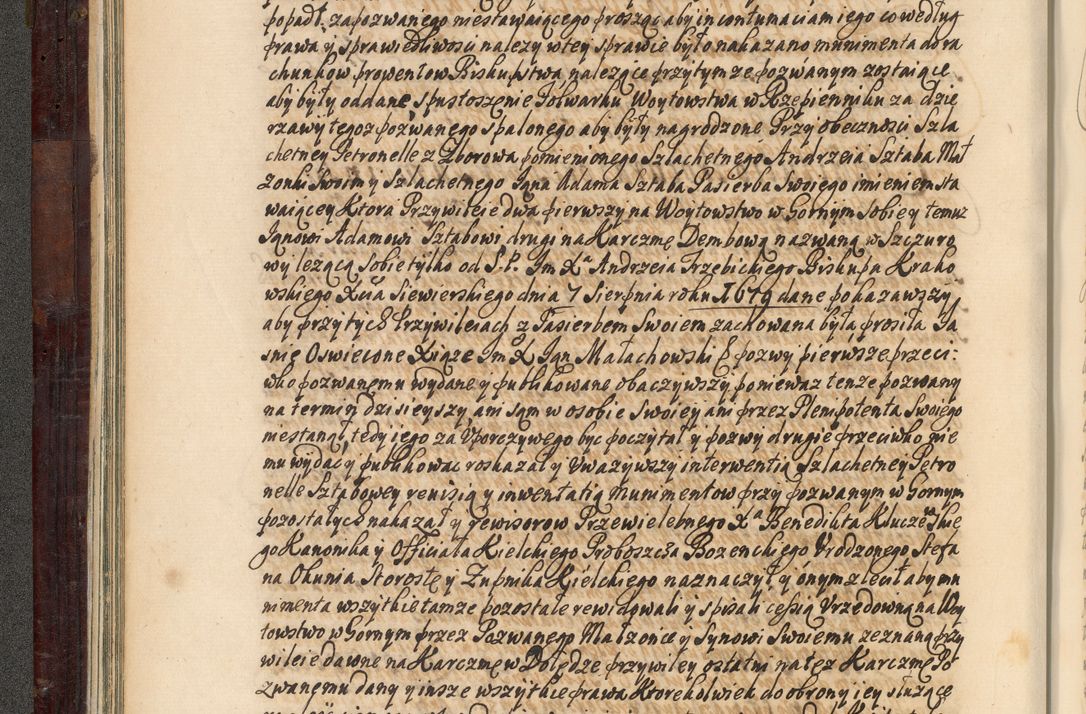 popadł, zapozwanego niestawaiącego prosząc aby in contumaciam iego co według
prawa y sprawiedliwosci nalezy wtey sprawie było nakazano munimenta ad ra
chunkow prowentow Biskupstwa nalezące przytymze pozwanym zostaiące
aby były oddane spustoszenie Folwarku Woytowstwa w Rzepienniku za dzie
rzawy tegoz pozwanego spalonego aby były nagrodzone Przy obecznosci Szla
chetney Petronelle z Zborowa pomienionego Szlachetnego Andrzeia Sztaba Mał
zonki Swoim y Szlachetnego Jana Adama Sztaba Pasierba Swoiego imieniem sta
waiącey Ktora Przywileie dwa pierwszy na Woytowstwo w Gornym sobie y temuz
Janowi Adamowi Sztabowi drugi na Karczmę Dembową nazwaną w Szczuro
wy lezącą sobie tylko od S. P. Jm Xa Andrzeia Trzebickiego Biskupa Krako
wskiego Xcia Siewierskiego dnia 7 Sierpnia roku 1679 dane pokazawszy
aby przy tych Przywileiach z Pasierbem Swoiem zachowana była prosiła Ja
snie Oswiecone Xiąze Jm X Jan Małachowski B pozwy pierwsze przeci:
wko pozwanemu wydane y publikowane obaczywszy poniewaz tenze pozwany
na termin dzisieyszy ani sam w osobie Swoiey ani przez Plenipotenta Swoiego
niestanął, tedy iego za Uporczywego byc poczytał y pozwy drugie przeciwko nie
mu wydac y publikowac roskazał y Uwazywszy interwentią Szlachetney Petro
nelle Sztabowey rewisią y inwentatią Munimentow przy pozwanym w Gornym
pozostałych nakazał y rewisorow Przewielebnego Xa Benedikta Kluczewskie
go Kanonika y Officiała Kielckiego Proboszcza Bozenckiego Urodzonego Stefa
na Okunia Storostę y Zupnika Kielckiego naznaczył y onym zlecił aby mu
nimenta wszytkie tamze pozostałe rewidowali y spisali cessią Urzędowną na Woy
towstwo w Gornym przez Pozwanego Małzonce y Synowi Swoiemu zeznaną przy
wileie dawne na Karczmę w Dołędze przywiley ostatni na tęz Karczmę Po
zwanemu dany y insze wszytkie prawa Ktorekolwiek do obrony iey słuzące